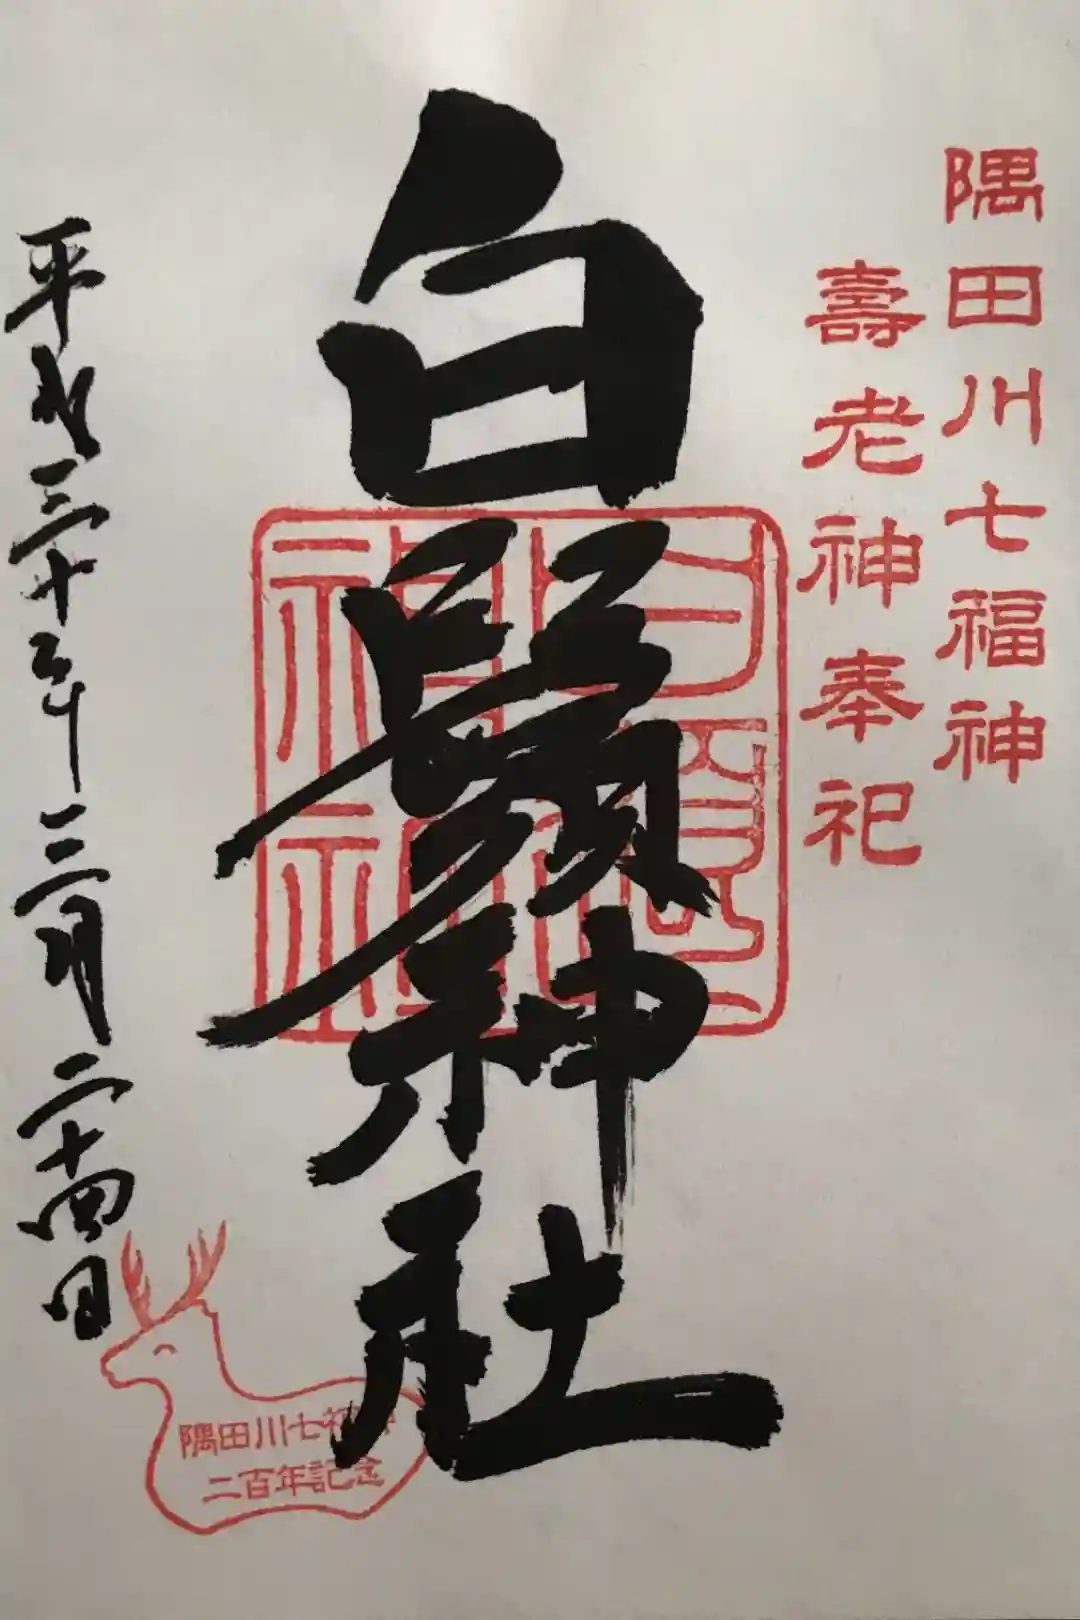 隅田川七福神
壽老神奉祀
白鬚神社
平成三十年三月二十四日
隅田川七福神
二百年記念